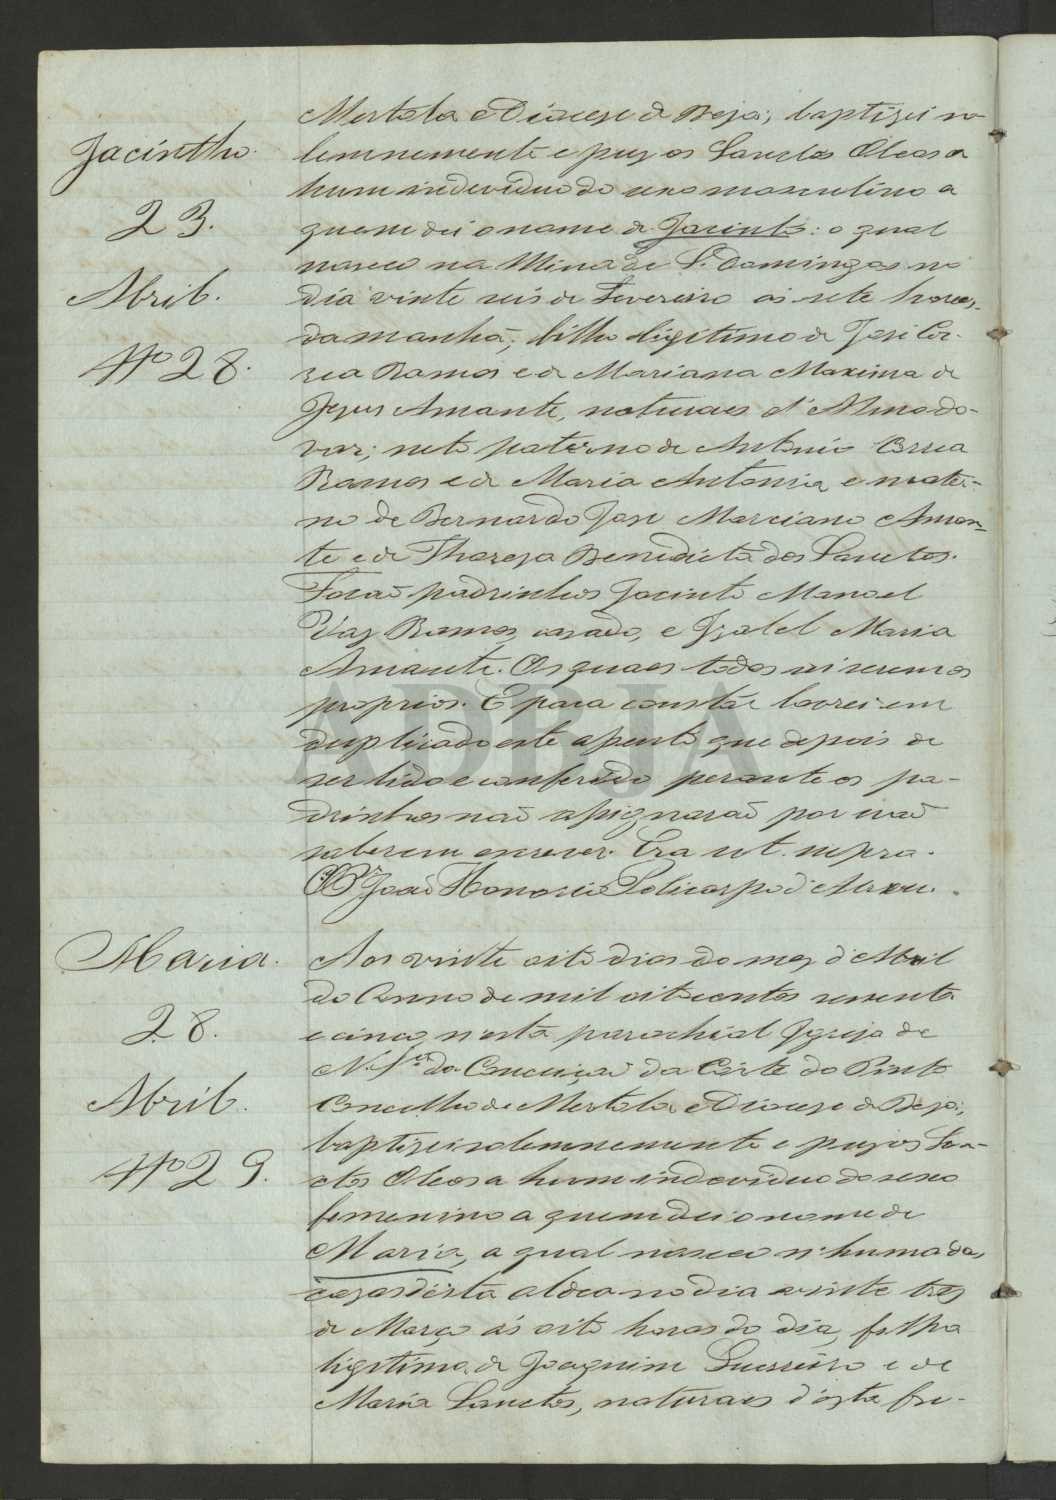 Mertola e Diocese de Beja; baptizei so-
Jacintho.
lemnemente e puz os Sanctos Oleos a
hum individuo do sexo masculino a
23.
quem dei o nome de Jacinto: o qual
nasceo na Mina de S. Domingos no
Abril.
dia vinte seis de Fevereiro ás sete horas,
da manhã, filho legitimo de José Cor-
Nº 28.
rea Ramos e de Mariana Maxima de
Jezus Amante, naturaes d'Almodo-
var; neto paterno de Antonio Correa
Ramos e de Maria Antonia, e mater-
no de Bernardo Jose Marciano Aman-
te e de Thereza Benedicta dos Sanctos.
Forão padrinhos Jacinto Manoel
Vaz Ramos, cazado, e Izabel Maria
Amante. Os quaes todos sei serem os
proprios. E para constár lavrei em
duplicado este assento que depois de
ser lido e conferido perante os pa-
drinhos não assignarão por não
saberem escrever. Era ut supra.
O Pr João Honorio Policarpo d'Abreu.
Maria.
Aos vinte oito dias do mez d'Abril
do Anno de mil oitocentos sessenta
28.
e cinco, n'esta parochial Igreja de
N. Srª da Conceição da Côrte do Pinto
Abril.
Concelho de Mertola e Diocese de Beja;
baptizei solemnemente e puz os San-
Nº 29.
ctos Oleos a hum individuo do sexo
femenino a quem dei o nome de
Maria, a qual nasceo n'huma das
cazas d'esta aldea no dia vinte tres
de Março ás oito horas do dia, filha
legitima de Joaquim Guerreiro e de
Maria Sanctos, naturaes d'esta fre-
ADBJA